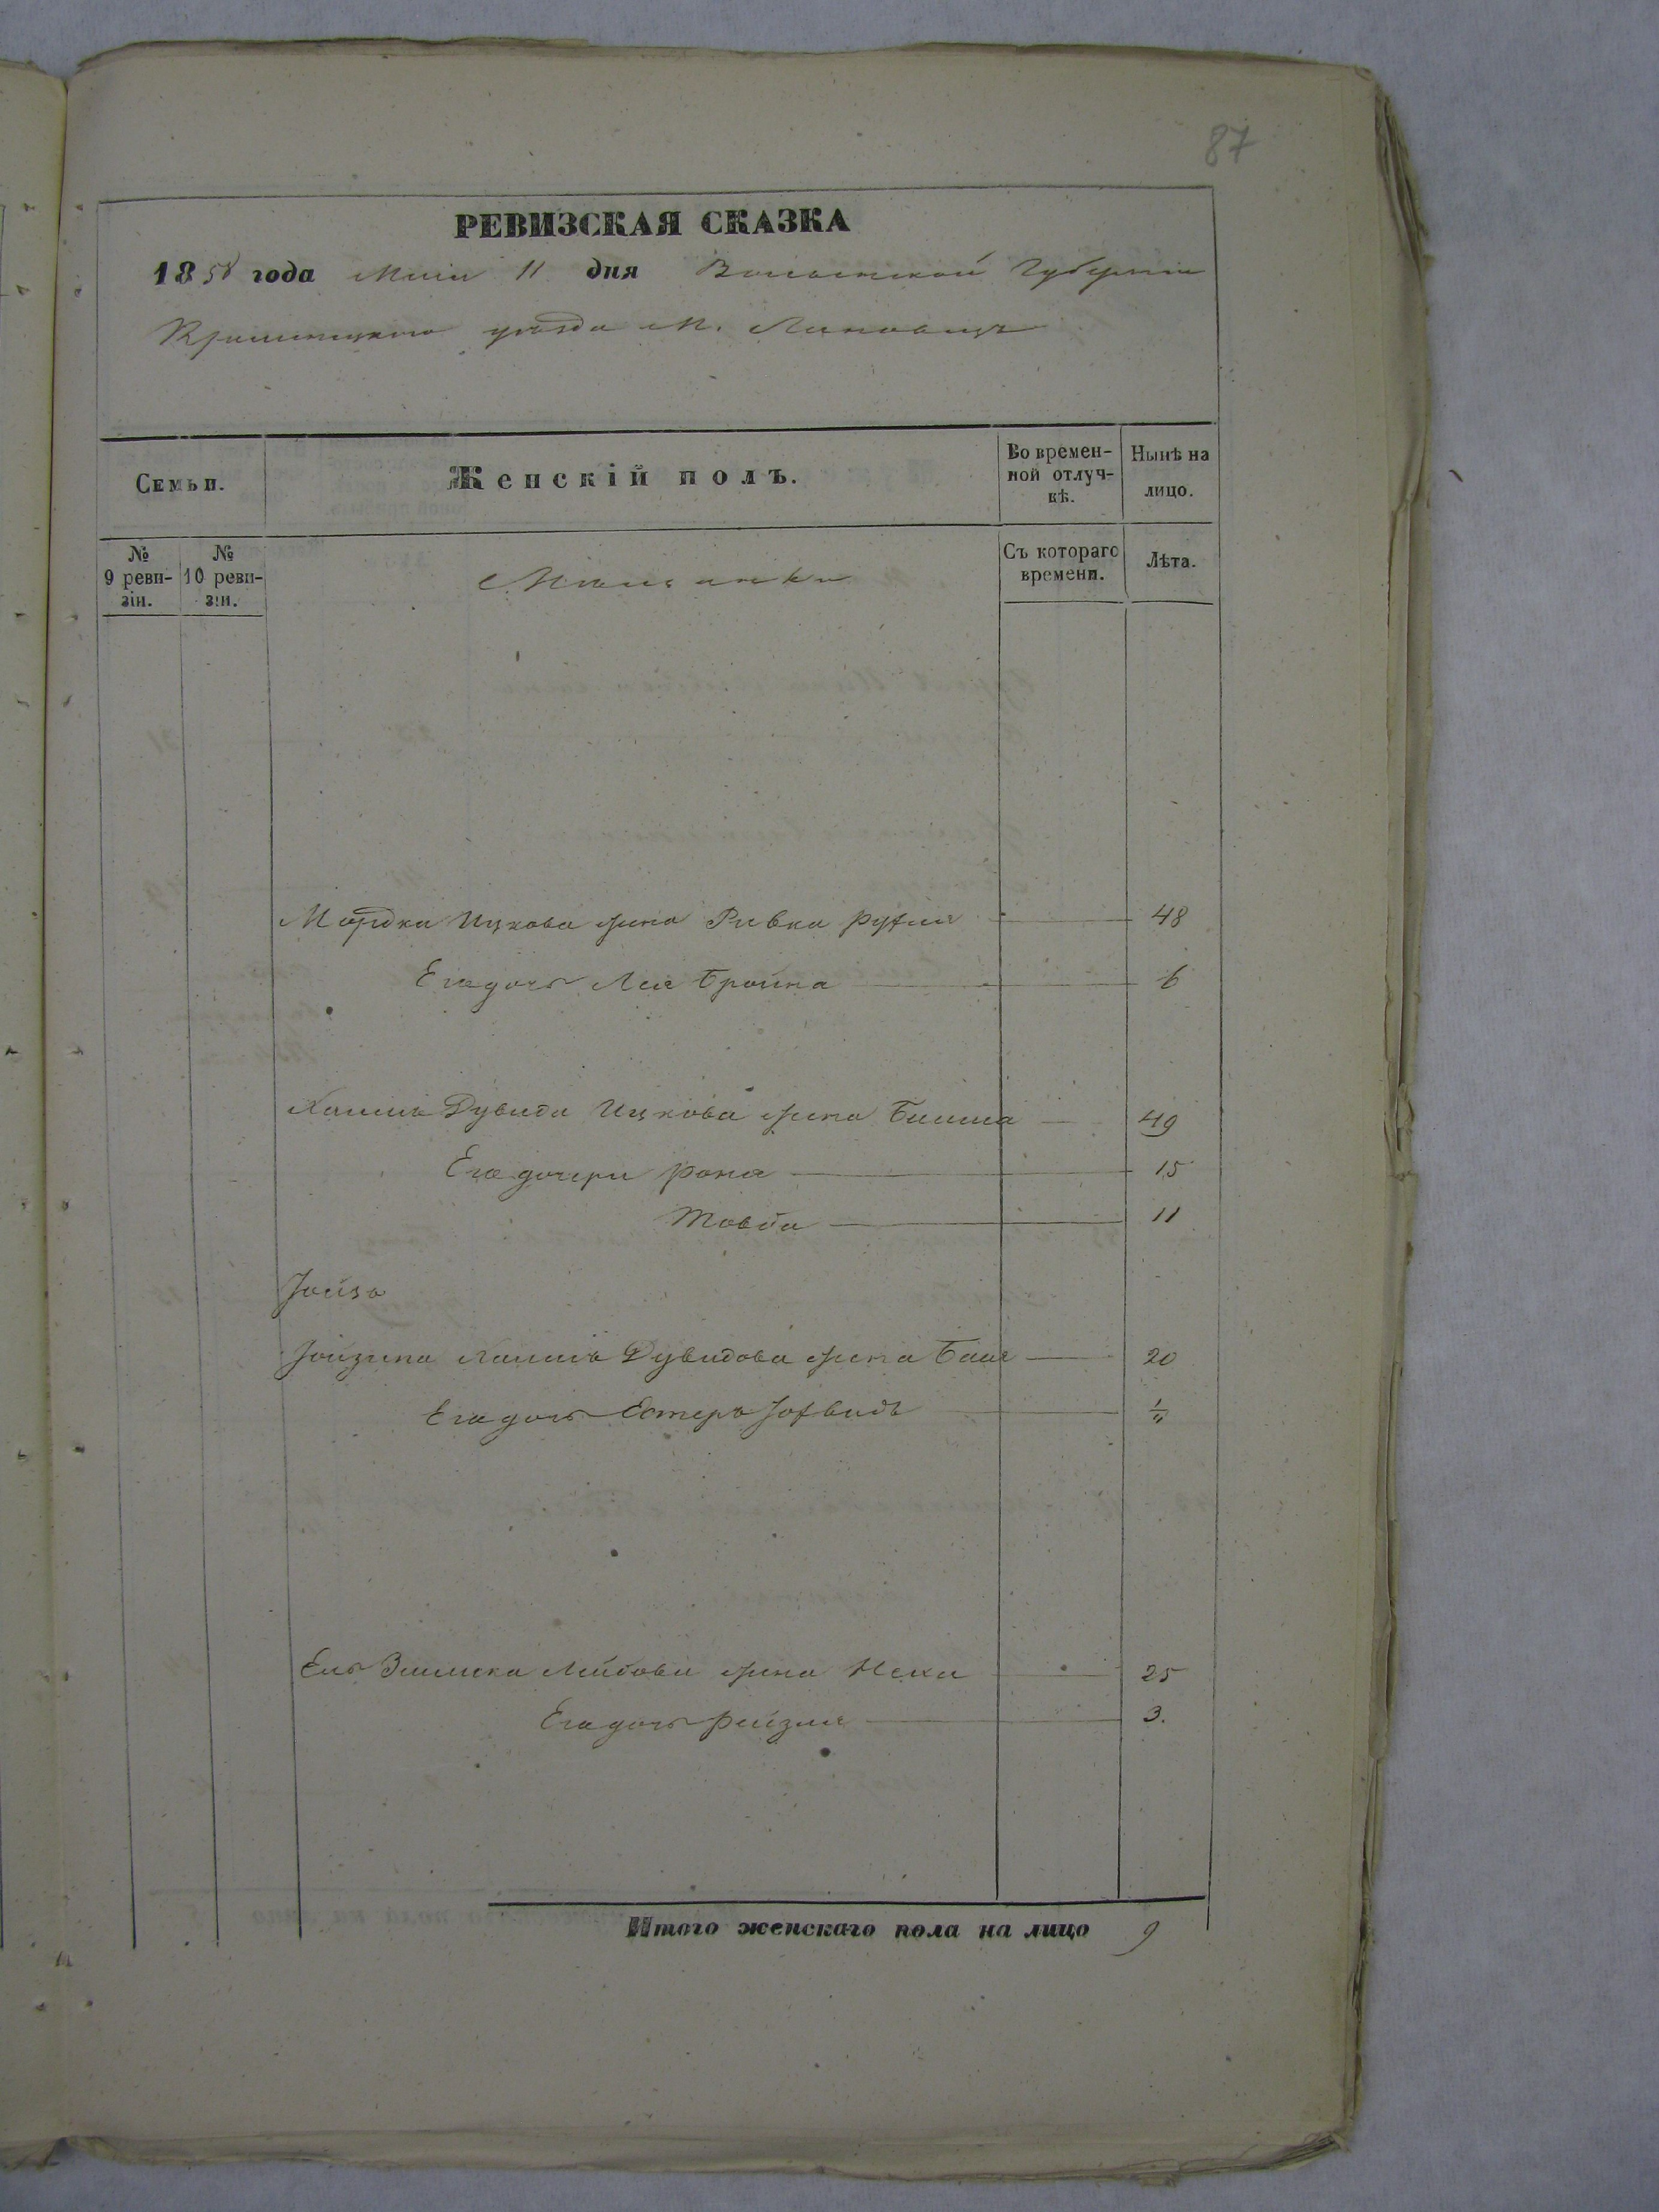 87
РЕВИЗСКАЯ СКАЗКА
1858 года Маія 11 дня Волынской Губерніи
Кременецкаго уѣзда М. Лановецъ
Семьи.
Женскій полъ.
Во времен-
ной отлуч-
кѣ.
Нынѣ на
лицо.
№
9 реви-
зіи.
№
10 реви-
зіи.
Мѣщанки
Съ котораго
времени.
Лѣта.
Мордка Ицкова жена Ривка Рухля 48
Его дочь Лея Бройна 6
Хаимъ Дувида Ицкова жена 49
Его дочери 15
Товба 11
Іойзина Хаимъ Дувидова жена Бася 20
Его дочь Естеръ 1/"
Ель Зимека Лейбова жена Неха 25
Его дочь Рейзля 3.
Итого женскаго пола на лицо 9